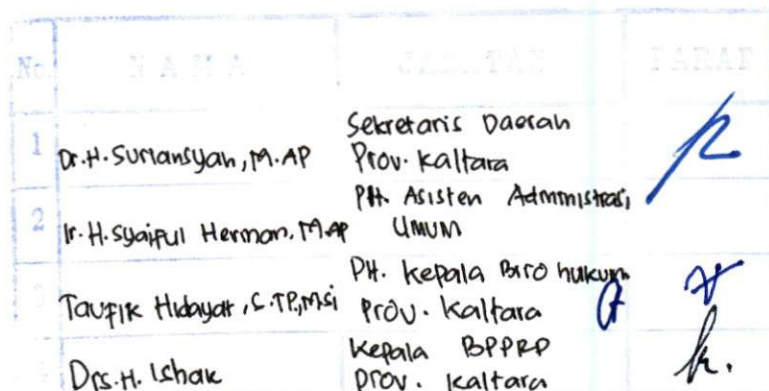 No. NAMA JABATAN PARAF
1 Dr. H. Suriansyah, M.AP Sekretaris Daerah
Prov. Kaltara
2 Ir. H. Syaiful Herman, M.AP PH. Asisten Administrasi
Umum
3 Taufik Hidayat, S.TP, M.Si PH. Kepala Biro hukum
Prov. Kaltara
4 Drs. H. Ishak Kepala BPPRD
Prov. Kaltara